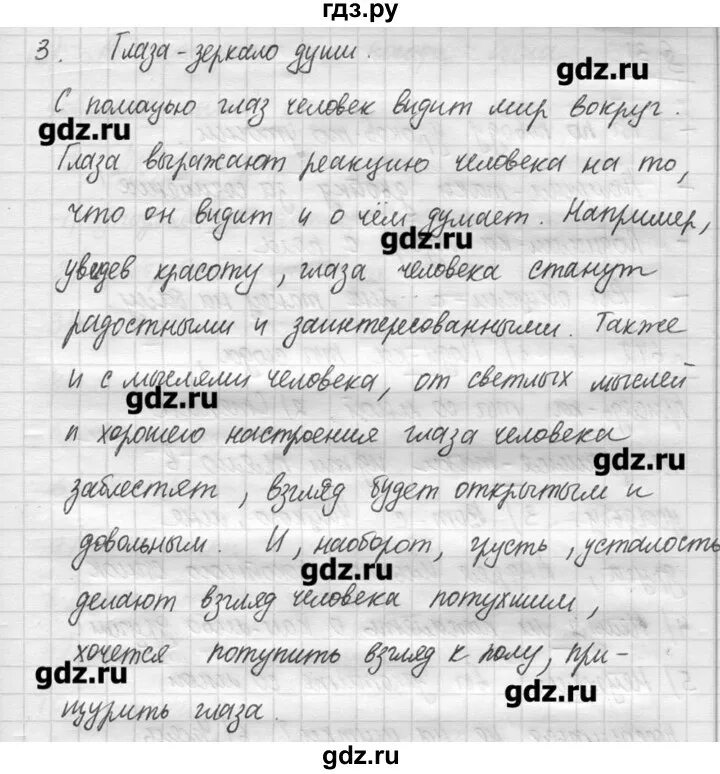 гдз.ру
3. Глаза - зеркало души.
gdz.ru
С помощью глаз человек видит мир вокруг.
gdz.ru
Глаза выражают реакцию человека на то,
что он видит и о чём думает. Например,
gdz.ru
увидев красоту, глаза человека станут
радостными и заинтересованными. Также
и с мыслями человека, от светлых мыслей
gdz.ru
и хорошего настроения глаза человека
gdz.ru
заблестят, взгляд будет открытым и
довольным. И, наоборот, грусть, усталость
gdz.ru
делают взгляд человека потухшим,
хочется потупить взгляд к полу, при-
gdz.ru
gdz.ru
щурить глаза.
gdz.ru